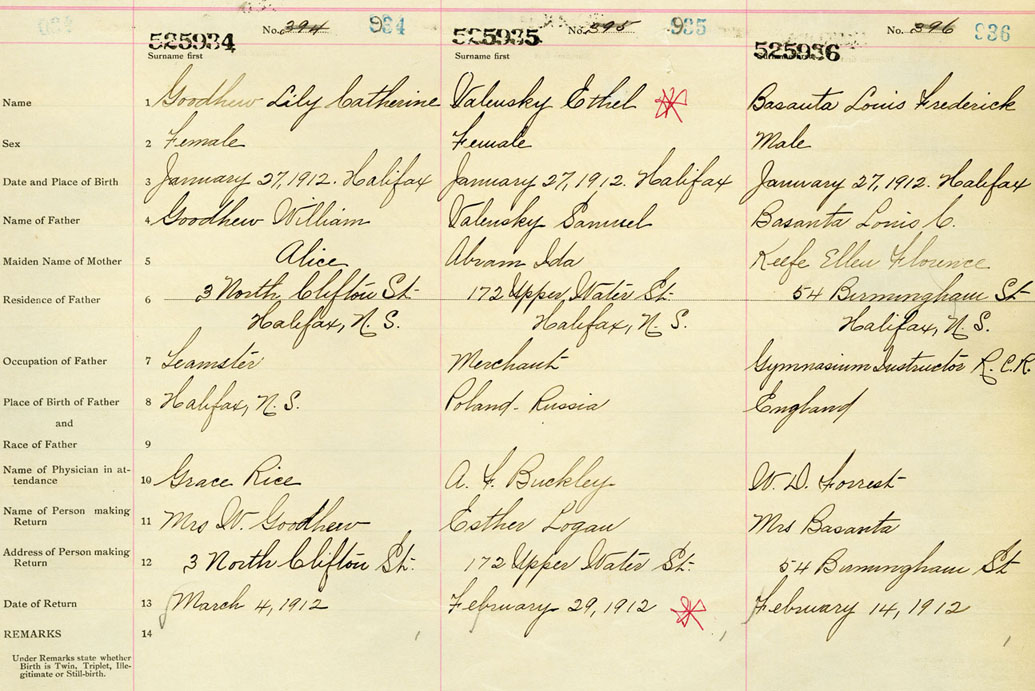 934 No. 394 934 No. 395 935 No. 396 936
525934 525935 525936
Surname first Surname first
Name 1 Goodhew Lily Catherine Valensky Ethel Basanta Louis Frederick
Sex 2 Female Female Male
Date and Place of Birth 3 January 27, 1912. Halifax January 27, 1912. Halifax January 27, 1912. Halifax
Name of Father 4 Goodhew William Valensky Samuel Basanta Louis C.
Maiden Name of Mother 5 Alice Abram Ida Keefe Ellen Florence
Residence of Father 6 3 North Clifton St. 172 Upper Water St. 54 Birmingham St
Halifax, N. S. Halifax, N. S. Halifax, N. S.
Occupation of Father 7 Teamster Merchant Gymnasium Instructor R.C.R.
Place of Birth of Father 8 Halifax, N. S. Poland - Russia England
and
Race of Father 9
Name of Physician in at-
tendance 10 Grace Rice A. F. Buckley W. D. Forrest
Name of Person making
Return 11 Mrs W. Goodhew Esther Logan Mrs Basanta
Address of Person making
Return 12 3 North Clifton St. 172 Upper Water St. 54 Birmingham St
Date of Return 13 March 4, 1912 February 29, 1912 February 14, 1912
REMARKS 14
Under Remarks state whether
Birth is Twin, Triplet, Ille-
gitimate or Still-birth.